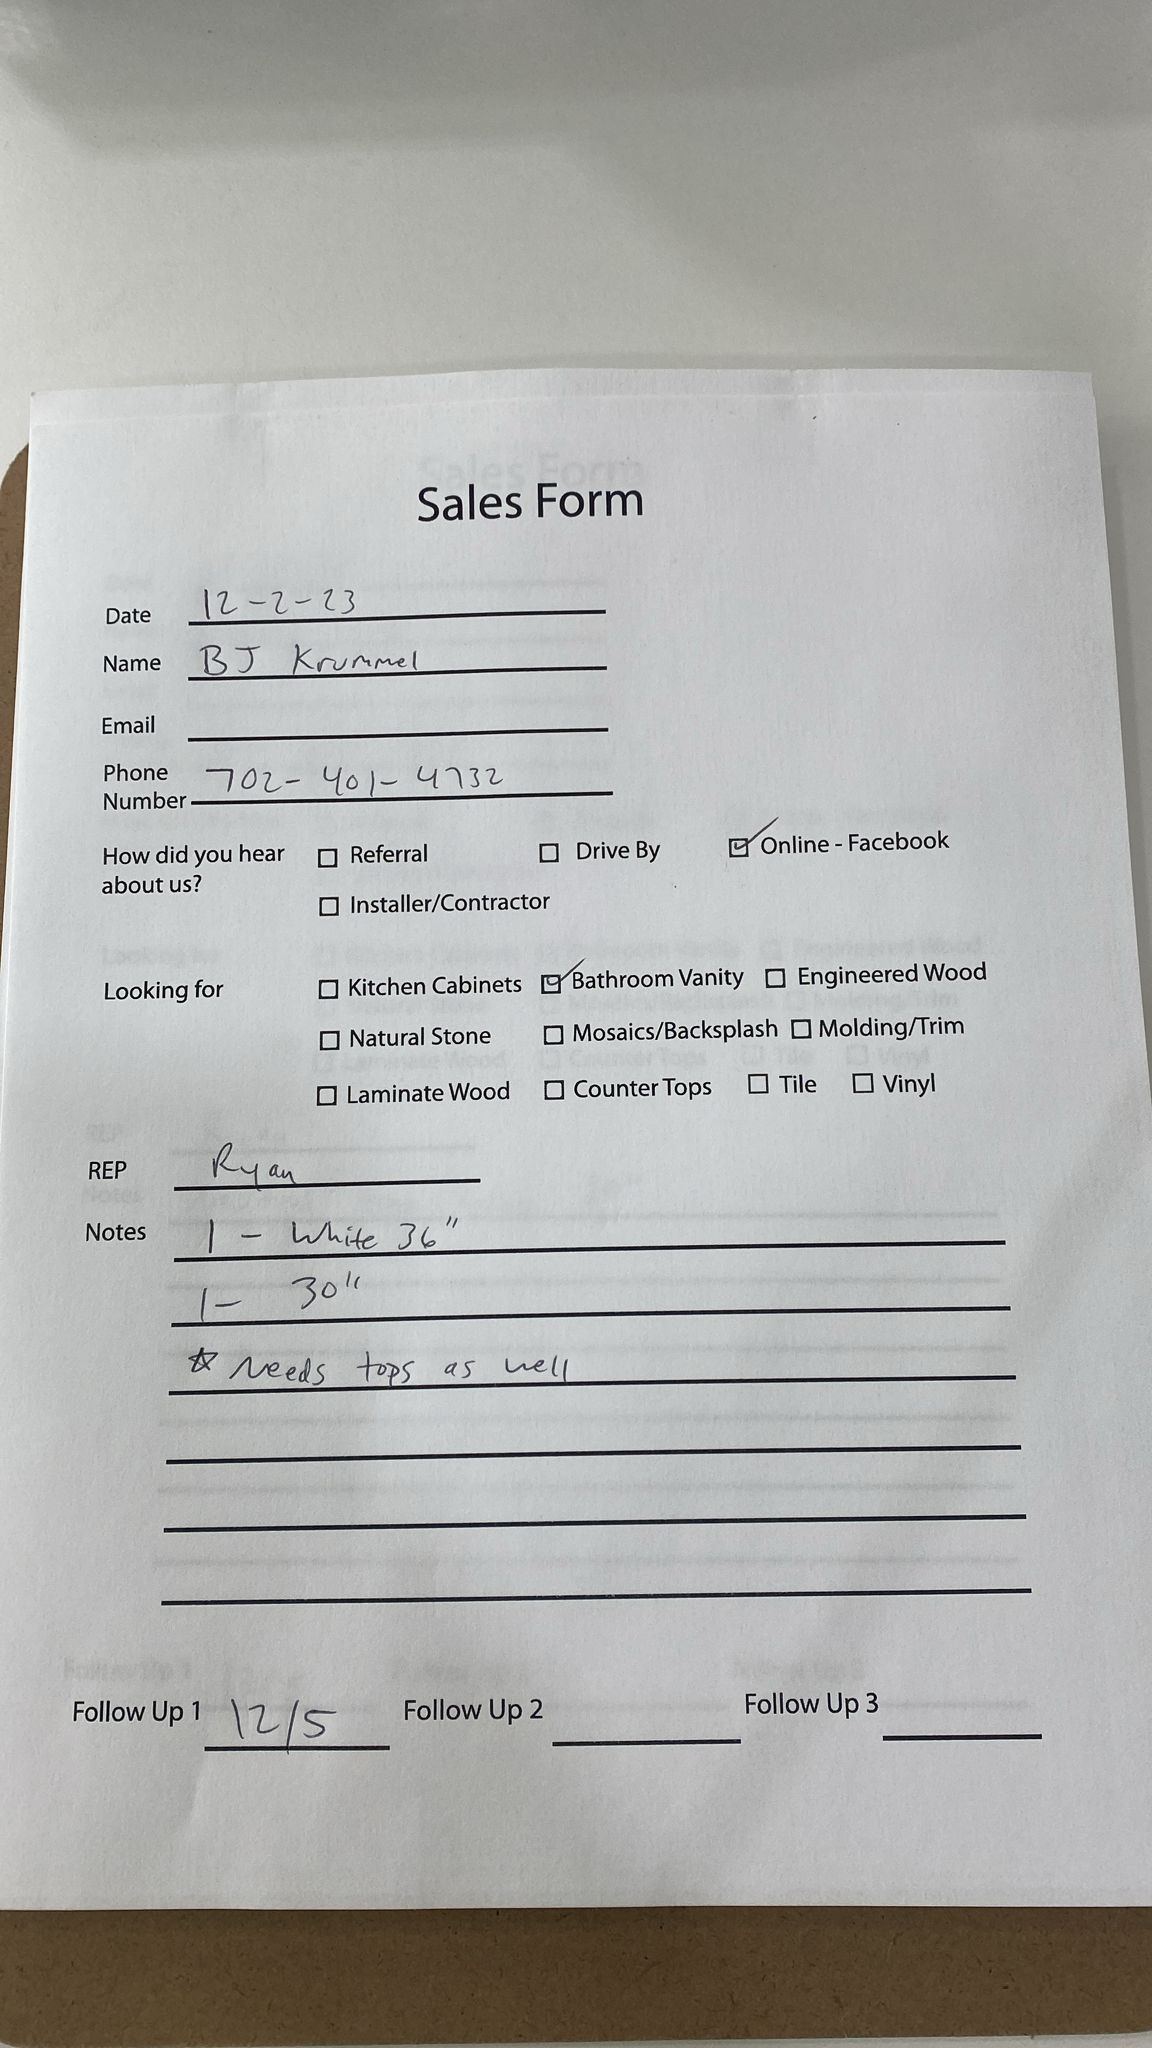 Sales Form
Date 12-2-23
Name BJ Krummel
Email
Phone Number 702-401-4732
How did you hear about us? ☐ Referral ☐ Drive By ☑ Online - Facebook
☐ Installer/Contractor
Looking for ☐ Kitchen Cabinets ☑ Bathroom Vanity ☐ Engineered Wood
☐ Natural Stone ☐ Mosaics/Backsplash ☐ Molding/Trim
☐ Laminate Wood ☐ Counter Tops ☐ Tile ☐ Vinyl
REP Ryan
Notes 1 - White 36"
1- 30"
☆ Needs tops as well
Follow Up 1 12/5 Follow Up 2 Follow Up 3